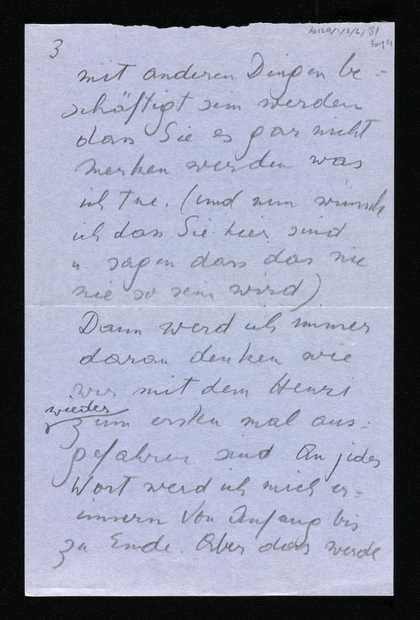 3
mit anderen Dingen be-
schäftigt sein werden
dass Sie es gar nicht
merken werden was
ich tue. (und nun wünsch
ich dass Sie hier sind
u sagen dass das nie
nie so sein wird)
Dann werd ich immer
daran denken wie
wir mit dem Henri
wieder
zum ersten mal aus-
gefahren sind An jedes
Wort werd ich mich er-
innern von Anfang bis
zu Ende. Aber das werde